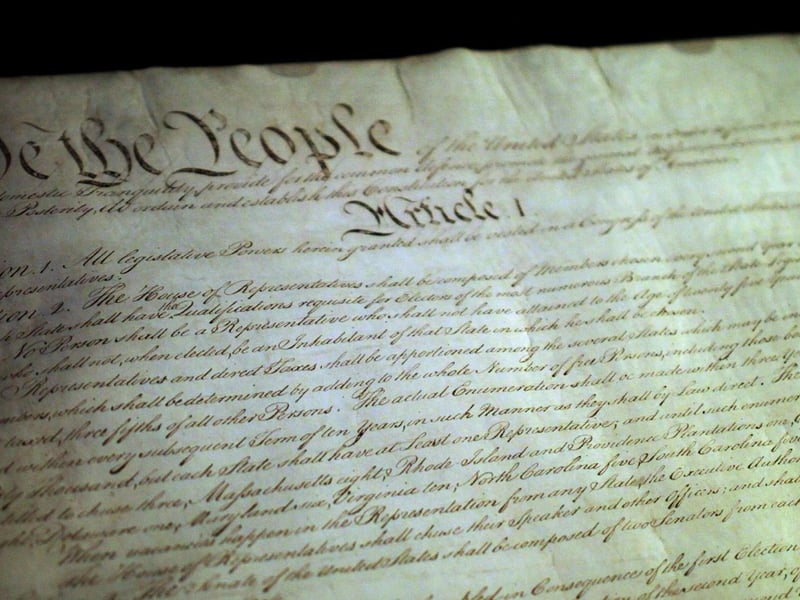 We the People of the United States
domestic Tranquility, provide for the common defence,
Posterity, do ordain and establish this Constitution for the United States of America.
Article. I.
on. 1. All legislative Powers herein granted shall be vested in a Congress of the United States
presentatives.
on. 2. The House of Representatives shall be composed of Members chosen every second Year
State shall have the Qualifications requisite for Electors of the most numerous Branch of the State
No Person shall be a Representative who shall not have attained to the Age of twenty five Years
who shall not, when elected, be an Inhabitant of that State in which he shall be chosen.
Representatives and direct Taxes shall be apportioned among the several States which may be in
mbers, which shall be determined by adding to the whole Number of free Persons, including those bo
taxed, three fifths of all other Persons. The actual Enumeration shall be made within three Y
d within every subsequent Term of ten Years, in such Manner as they shall by Law direct. The
ty Thousand, but each State shall have at Least one Representative; and until such enumer
titled to chuse three, Massachusetts eight, Rhode Island and Providence Plantations one, C
ght, Delaware one, Maryland six, Virginia ten, North Carolina five, South Carolina five
When vacancies happen in the Representation from any State, the Executive Author
The House of Representatives shall chuse their Speaker and other Officers; and shall
The Senate of the United States shall be composed of two Senators from each
in Consequence of the first Election
of the second Year,